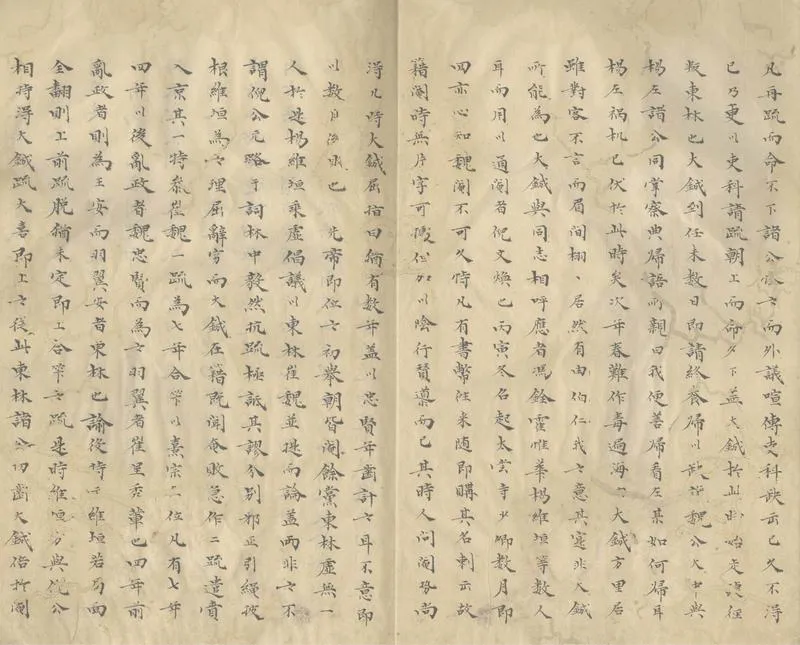 凡再疏而命不下諸公以而外議喧傳吏科缺出已久不得
已乃更以吏科請疏朝上而命夕下蓋大鋮於此始走捷徑
叛東林也大鋮到任未數日即請終養歸以缺讓魏公大中與
楊左諸公同掌察典歸語所親曰我便善歸看左某如何歸耳
楊左禍机已伏於此時矣次年春難作毒遍海內大鋮方里居
雖對客不言而眉間栩栩居然有由伯仁我之意其寔非大鋮
所能為也大鋮與同志相呼應者馮銓霍維華楊維垣等數人
耳而用以通閹者倪文煥也丙寅冬名起太常寺少卿數月即
回亦心知魏閹不可久恃凡有書幣往來隨即購其名刺出故
籍閹時無片字可據但加以陰行贊導而已其時人問閹勢尚
得凡時大鋮屈指曰倘有數年蓋以忠賢年齒計之耳不意即
以數月敗也先帝即位之初舉朝皆閹餘黨東林虛無一
人於是楊維垣乘虛倡議以東林崔魏並提而論蓋兩非之不
謂倪公元璐于詞林中毅然抗疏極詆其謬分別邪正引繩披
根維垣為之理屈辭窮而大鋮在籍既聞奄敗急作二疏遣賚
入京其一特參崔魏一疏為七年合算以熹宗在位凡有七年
四年以後亂政者魏忠賢而為之羽翼者崔呈秀輩也四年前
亂政者則為王安而羽翼安者東林也諭役時示維垣若局面
全翻則上前疏脫倘未定即上合算之疏是時維垣方與倪公
相持得大鋮疏大喜即上之從此東林諸公切齒大鋮倍於閹